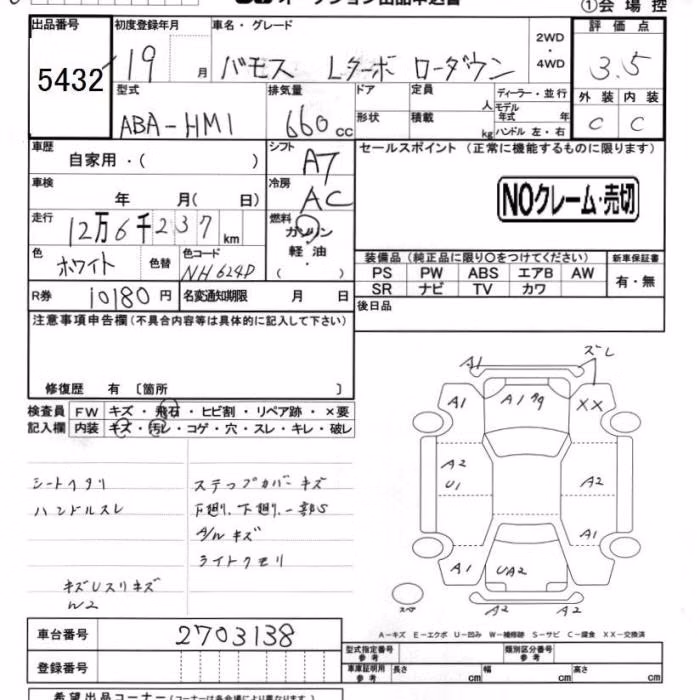 ①会場控
出品番号
5432
初度登録年月
19 月
車名・グレード
バモス Lターボ ローダウン
2WD
・
4WD
評価点
3.5
外装 内装
C C
型式
ABA-HM1
排気量
660 cc
ドア
定員
人
形状
積載
kg
ディーラー・並行
モデル
年式 年
ハンドル 左・右
車歴
自家用・( )
シフト
A7
セールスポイント (正常に機能するものに限ります)
NOクレーム・売切
車検
年 月( 日)
冷房
AC
走行
12万6千237 km
燃料
ガソリン
・
軽油
( )
色
ホワイト
色替
色コード
NH624P
装備品 (純正品に限り○をつけてください)
PS PW ABS エアB AW
SR ナビ TV カワ
新車保証書
有・無
R券
10180 円
名変通知期限 月 日
後日品
注意事項申告欄 (不具合内容等は具体的に記入して下さい)
修復歴 有 〔箇所 〕
検査員 FW キズ・飛石・ヒビ割・リペア跡・×要
記入欄 内装 キズ・汚レ・コゲ・穴・スレ・キレ・破レ
シートヘタリ
ハンドルスレ
キズUスリキズ
W2
ステップカバーキズ
下廻り、下廻り、一部S
A/Wキズ
ライトクモリ
A1
ズレ
A1
XX
A2
U1
A2
A1
A1
UA2
A2
A2
スペア
A-キズ E-エクボ U-凹み W-補修跡 S-サビ C-腐食 XX-交換済
車台番号
2703138
登録番号
型式指定番号
参考
類別区分番号
参考
車庫証明用
参考
長さ cm
幅 cm
高さ cm
希望出品コーナー (コーナーは各会場により異なります)